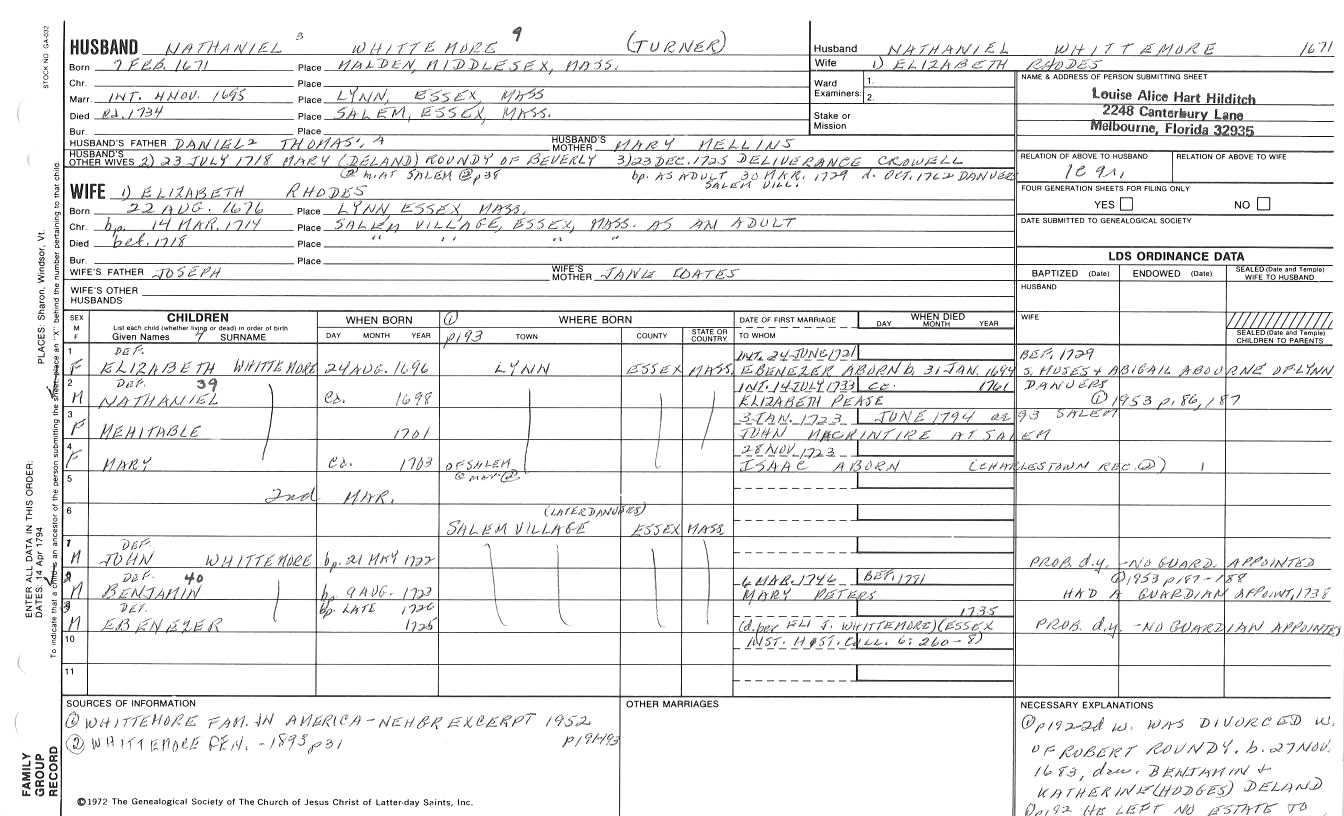 STOCK NO. GA-032
HUSBAND NATHANIEL 3 WHITTEMORE 9 (TURNER)
Born 7 FEB. 1671 Place MALDEN, MIDDLESEX, MASS.
Chr. Place
Marr. INT. 4 NOV. 1695 Place LYNN, ESSEX, MASS
Died 1734 Place SALEM, ESSEX, MASS.
Bur. Place
HUSBAND'S FATHER DANIEL 2 THOMAS 1, A HUSBAND'S MOTHER MARY MELLINS
HUSBAND'S OTHER WIVES 2) 23 JULY 1718 MARY (DELAND) ROUNDY OF BEVERLY 3) 23 DEC. 1725 DELIVERANCE CROWELL
m. AT SALEM ② p38 bp. AS ADULT 30 MAR. 1729 d. OCT. 1762 DANVERS
SALEM VILL.
WIFE 1) ELIZABETH RHODES
Born 22 AUG. 1676 Place LYNN, ESSEX, MASS.
Chr. bp. 14 MAR. 1714 Place SALEM VILLAGE, ESSEX, MASS. AS AN ADULT
Died bef. 1718 Place " " " "
Bur. Place
WIFE'S FATHER JOSEPH WIFE'S MOTHER JANE COATES
WIFE'S OTHER HUSBANDS
Husband NATHANIEL WHITTEMORE 1671
Wife 1) ELIZABETH RHODES
Ward Examiners: 1. 2.
Stake or Mission
NAME & ADDRESS OF PERSON SUBMITTING SHEET
Louise Alice Hart Hilditch
2248 Canterbury Lane
Melbourne, Florida 32935
RELATION OF ABOVE TO HUSBAND RELATION OF ABOVE TO WIFE
FOUR GENERATION SHEETS FOR FILING ONLY
YES NO
DATE SUBMITTED TO GENEALOGICAL SOCIETY
LDS ORDINANCE DATA
BAPTIZED (Date) ENDOWED (Date) SEALED (Date and Temple) WIFE TO HUSBAND
HUSBAND
WIFE
SEALED (Date and Temple) CHILDREN TO PARENTS
SEX M F CHILDREN WHEN BORN ① WHERE BORN DATE OF FIRST MARRIAGE WHEN DIED
List each child (whether living or dead) in order of birth
Given Names 7 SURNAME DAY MONTH YEAR p193 TOWN COUNTY STATE OR COUNTRY TO WHOM DAY MONTH YEAR
1 DEF. INT. 24 JUNE 1721 BEF. 1729
F ELIZABETH WHITTEMORE 24 AUG. 1696 LYNN ESSEX MASS. EBENEZER ABORN b. 31 JAN. 1694 s. MOSES & ABIGAIL ABOURNE OF LYNN
2 DEF. 39 INT. 14 JULY 1733 ca. 1761 DANVERS
M NATHANIEL ca. 1698 ELIZABETH PEASE ① 1953 p.86, 187
3 3 JAN. 1723 JUNE 1794 ae 93 SALEM
F MEHITABLE 1701 JOHN MACKINTIRE AT SALEM
4 28 NOV. 1723
F MARY ca. 1703 OF SALEM ISAAC ABORN (CHARLESTOWN REC. ②)
5
2nd MAR.
6 (LATER DANVERS)
SALEM VILLAGE ESSEX MASS.
7 DEF.
M JOHN WHITTEMORE bp. 21 MAY 1722 PROB. d.y. -NO GUARD. APPOINTED
8 DEF. 40 6 MAR. 1746 BEF. 1781 ① 1953 p187-188
M BENJAMIN bp. 9 AUG. 1723 MARY PETERS HAD A GUARDIAN APPOINT, 1738
9 DEF. bp. LATE 1726 1735
M EBENEZER 1725 (d. per ELI J. WHITTEMORE) (ESSEX PROB. d.y. -NO GUARDIAN APPOINTED
10 INST. HIST. COLL. 6: 260-8)
11
SOURCES OF INFORMATION
① WHITTEMORE FAM. IN AMERICA - NEHGR EXCERPT 1952
② WHITTEMORE GEN. - 1893 p31 p191-193
OTHER MARRIAGES
NECESSARY EXPLANATIONS
① p192-2d w. WAS DIVORCED W.
OF ROBERT ROUNDY. b. 27 NOV.
1683, dau. BENJAMIN &
KATHERINE (HODGES) DELAND
① p192 HE LEFT NO ESTATE TO
©1972 The Genealogical Society of The Church of Jesus Christ of Latter-day Saints, Inc.
FAMILY GROUP RECORD
ENTER ALL DATA IN THIS ORDER:
DATES: 14 Apr 1794
PLACES: Sharon, Windsor, Vt.
To indicate that a child is an ancestor of the person submitting the sheet, place an "X" behind the number pertaining to that child.